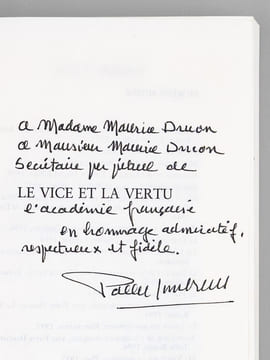 a Madame Maurice Druon
a Monsieur Maurice Druon
Secrétaire perpétuel de
LE VICE ET LA VERTU
l'académie française
en hommage admiratif,
respectueux et fidèle.